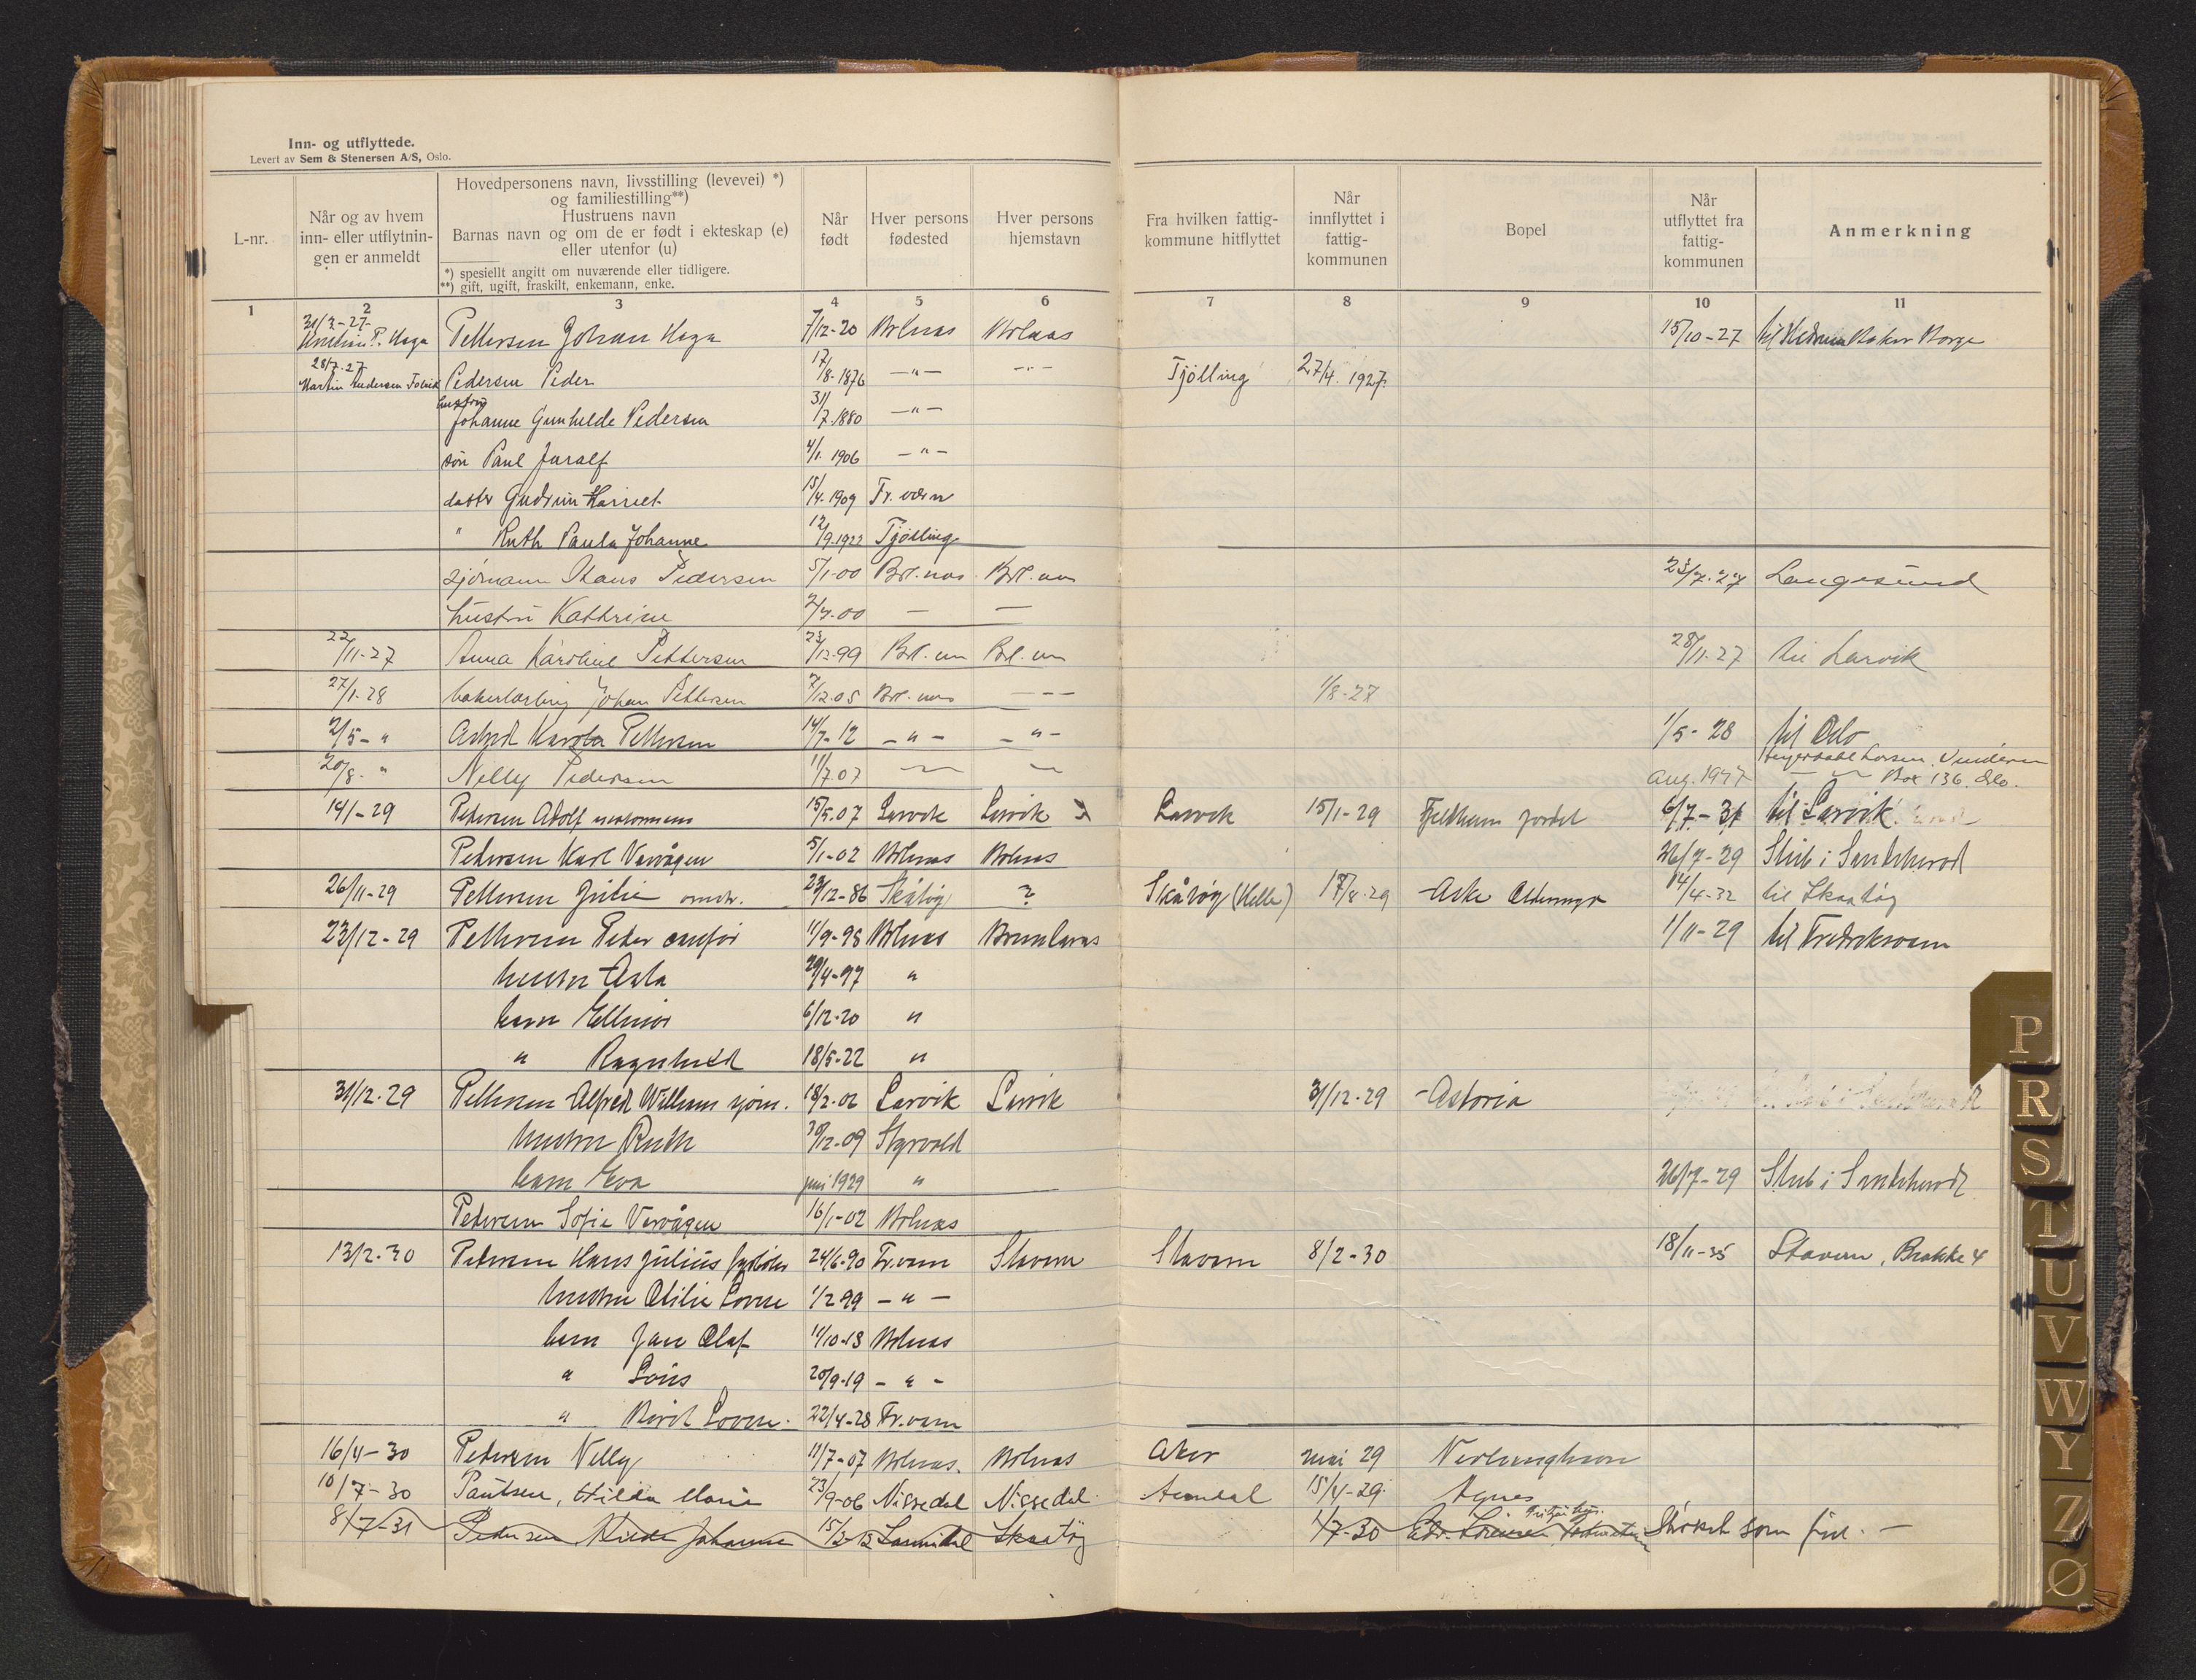 Inn- og utflyttede.
Levert av Sem & Stenersen A/S, Oslo.
L-nr.
Når og av hvem inn- eller utflytnin-gen er anmeldt
Hovedpersonens navn, livsstilling (levevei) *)
og familiestilling**)
Hustruens navn
Barnas navn og om de er født i ekteskap (e)
eller utenfor (u)
*) spesiellt angitt om nuværende eller tidligere.
**) gift, ugift, fraskilt, enkemann, enke.
Når født
Hver persons fødested
Hver persons hjemstavn
Fra hvilken fattig-kommune hitflyttet
Når innflyttet i fattig-kommunen
Bopel
Når utflyttet fra fattig-kommunen
Anmerkning
1 2 3 4 5 6 7 8 9 10 11
31/3-27 Pettersen Johan Haga 7/12-20 Brlnas Brlaas 15/10-27 til Hedrum Baker Borge
28/7.27 Martin Andersen Pedersen Peder 17/8-1876 -"- -"- Tjölling 27/4. 1927.
hustru Johanne Gunhilde Pedersen 31/7.1880 -"-
sön Paul Juralf 4/1. 1906 -"-
datter Gudrun Harriet 15/4-1909 Fr. værn
" Ruth Paula Johanne 12/9.1922 Tjölling
sjömann Hans Pedersen 5/1-00 Brl.nas Brl.nas 23/7.27 Langesund
hustru Kathrine 2/7-00 — —
22/11-27 Anna Karoline Pettersen 23/12-99 Brl.nas Brl.nas 28/11-27 til Larvik
27/1-28 bakerlærling Johan Pettersen 7/12.05 Brl.nas --- 1/8-27
2/5- " Astrid Karola Pettersen 14/7-12 -"- -"- 1/5-28 til Oslo
20/8- " Nelly Pedersen 11/7.07 Aug. 1927 Box 136. Oslo.
14/1-29 Pedersen Adolf 15/5.07 Larvik Larvik Larvik 15/1-29 Fjeldheim jordet 6/7-31 til Larvik
Pedersen Karl Vervågen 5/1-02 Brlnas Brlnas 26/7-29 Stub i Sandeherred
26/11-29 Pettersen Julie 23/12-86 Skåtöy ? Skåtöy (Helle) 17/8-29 Aske 14/4-32 til Skaatöy
23/12-29 Pettersen Peder 11/9-98 Brlnas Brunlanes 1/11-29 til Fredriksværn
hustru Asla 29/4-97 "
barn Ellinor 6/12-20 "
" Ragnhild 18/5-22 "
31/12-29 Pettersen Alfred William sjöm. 18/2-02 Larvik Larvik 31/12-29 Astoria
hustru Ruth 30/12-09 Styrvold
barn Eva juni 1929 " 26/7-29 Stub i Sandeherred
Pedersen Sofie Vervågen 16/1-02 Brlnas
13/2-30 Pedersen Hans Julius 24/6-90 Fr.værn Stavern Stavern 8/2-30 18/11-35 Stavern, Brakke 4
hustru Otilie Lovise 1/2 99 -"-
barn Jan Olaf 11/10-13 Brlnas
" Louis 20/9-19 -"-
" Berit Lovise 22/4-28 Fr.værn
16/4-30 Pedersen Nelly 11/7-07 Brlnas. Brlnas Aker mai 29
10/7-30 Paulsen, Hilda Marie 23/9-06 Nissedal Nissedal Arendal 15/4-29 Agnes
8/7-31 Pedersen Hilda Johanne 15/3-12 Sannidal Skaatöy 1/7-30 Strøket som feil. —
P
R
S
T
U
V
W
Y
Z
Ø